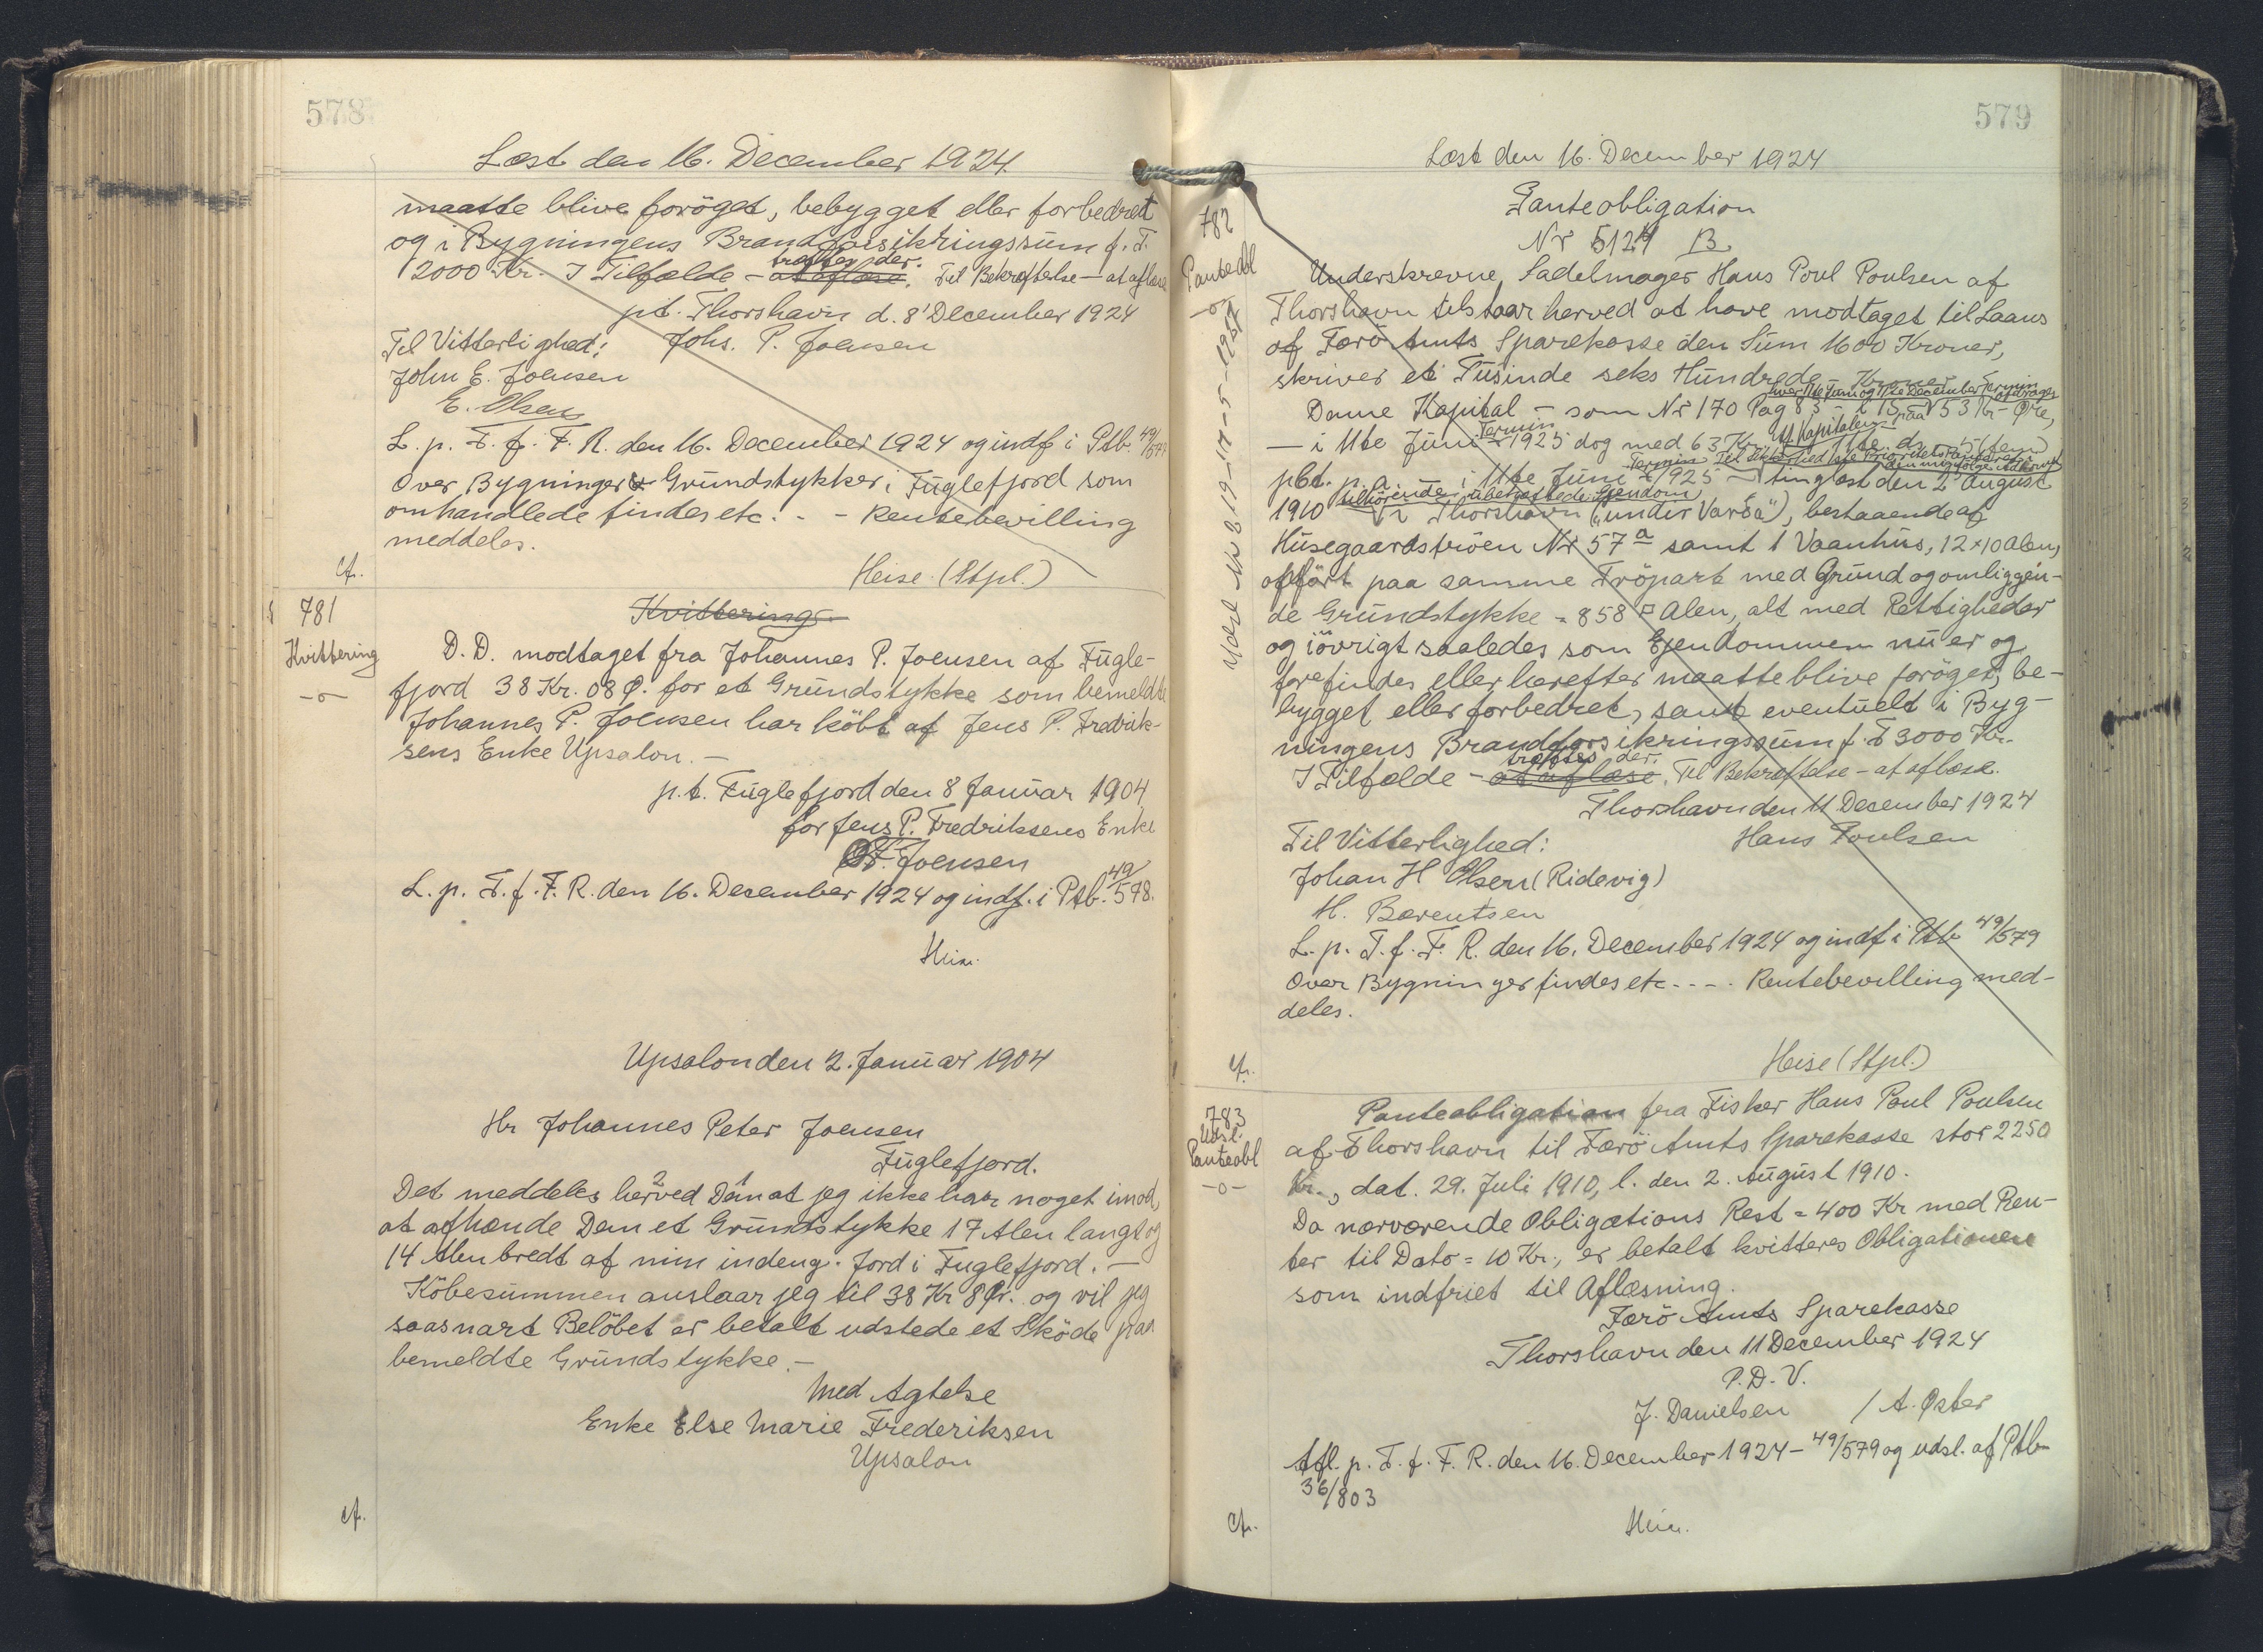 578
Læst den 16. December 1924.
maatte blive forøget, bebygget eller forbedret
og i Bygningens Brandforsikringssum f. T.
2000 Kr. I Tilfælde - at aflæse. træffes der. Til Bekræftelse - at aflæse
pt. Thorshavn d. 8' December 1924
Til Vitterlighed: Johs. P. Joensen
John E. Joensen
E. Olsen
L. p. T. f. F. R. den 16. December 1924 og indf i Ptb. 49/577
Over Bygninger & Grundstykker i Fuglefjord som
omhandlede findes etc. - - Rentebevilling
meddeles.
cfr. Heise (Stpl.)
781
Kvittering
-o-
Kvittering
D. D. modtaget fra Johannes P. Joensen af Fugle-
fjord 38 Kr. 08 Ø. for et Grundstykke som bemeldte
Johannes P. Joensen har købt af Jens P. Fredrik-
sens Enke Upsalon. -
p.t. Fuglefjord den 8 Januar 1904
for Jens P. Fredriksens Enke
Joensen
L. p. T. f. F. R. den 16. December 1924 og indf. i Ptb. 49/578.
Heise.
Upsalon den 2. Januar 1904
Hr Johannes Peter Joensen
Fuglefjord.
Det meddeles herved Dem at jeg ikke har noget imod,
at afhænde Dem et Grundstykke 17 Alen langt og
14 Alen bredt af min indeng. Jord i Fuglefjord. -
Købesummen anslaar jeg til 38 Kr 8 Ør. og vil jeg
saasnart Beløbet er betalt udstede et Skøde paa
bemeldte Grundstykke. -
Med Agtelse
Enke Else Marie Frederiksen
Upsalon
cfr.
579
Læst den 16. December 1924
782
Panteobl
-o-
Panteobligation
Nr 5124 B.
Underskrevne Sadelmager Hans Poul Poulsen af
Thorshavn tilstaar herved at have modtaget til Laans
af Færø Amts Sparekasse den Sum 1600 Kroner,
skriver et Tusinde seks Hundrede Kroner
hver 11te Juni og 11te December Termin afdrages
Denne Kapital - som Nr 170 Pag 83 - paa 53 Kr - Øre,
- i 11te Juni Termin 1925 dog med 63 Kr af Kapitalen
pCt. p. a. i 11te Juni Termin 1925 - tinglæst den 2' August
1910 tilhørende ubehæftede Ejendom i Thorshavn ("under Varða"), bestaaende af
Husegaardstrøen Nr 57a samt 1 Vaanhus, 12 x 10 Alen,
opført paa samme Trøpart med Grund og omliggen-
de Grundstykke = 858 □ Alen, alt med Rettigheder
og iøvrigt saaledes som Ejendommen nu er og
forefindes eller herefter maatte blive forøget, be-
bygget eller forbedret, samt eventuelt i Byg-
ningens Brandforsikringssum f. T 3000 Kr.
I Tilfælde - at aflæse. træffes der. Til Bekræftelse - at aflæse.
Thorshavn den 11 December 1924
Til Vitterlighed: Hans Poulsen
Johan H Olsen (Ridevig)
M. Bærentsen
L. p. T. f. F. R. den 16. December 1924 og indf i Ptb 49/579
Over Bygninger findes etc - - - . Rentebevilling med-
deles.
cfr. Heise (Stpl.)
783
Udsl.
Panteobl
-o-
Panteobligation fra Fisker Hans Poul Poulsen
af Thorshavn til Færø Amts Sparekasse stor 2250
Kr., dat. 29. Juli 1910, l. den 2. August 1910.
Da nærværende Obligations Rest = 400 Kr med Ren-
ter til Dato = 10 Kr., er betalt kvitteres Obligationen
som indfriet til Aflæsning.
Færø Amts Sparekasse
Thorshavn den 11 December 1924
P. D. V.
J. Danielsen / A. Øster
Afl. p. T. f. F. R. den 16. December 1924 - 49/579 og udsl. af Ptb
36/803
cfr. Heise.